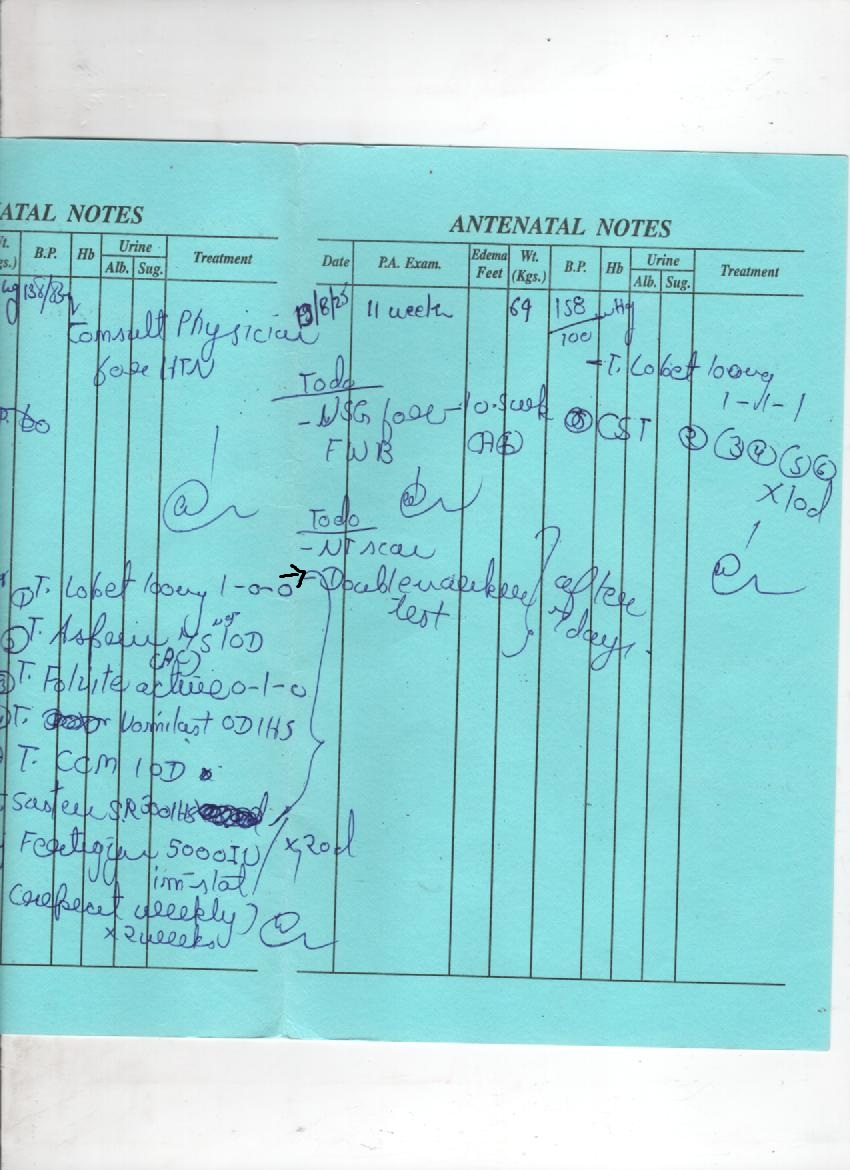 ATAL NOTES
Wt. (Kgs.) B.P. Hb Urine Alb. Sug. Treatment
158/85
Consult Physician
for HTN
T. Lobet 100mg 1-0-0
T. Aspirin 75 1OD
T. Folvite active 0-1-0
T. OD1HS
T. CCM 1OD
Susten SR 300 1HS
Fertigyn 5000IU x 20d
im-stat
(repeat weekly)
x 2 weeks
ANTENATAL NOTES
Date P.A. Exam. Edema Feet Wt. (Kgs.) B.P. Hb Urine Alb. Sug. Treatment
/8/25 11 week 69 158/100 Hg
- T. Lobet 100mg
1-1-1
Todo
- USG for
FWB
CST ② ③ ④ ⑤ ⑥
x10d
Todo
- NT scan
- Double marker
test
after
7 days.